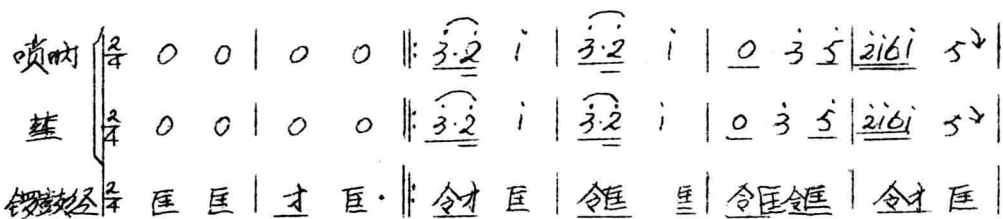 唢呐 2/4 0 0 | 0 0 ‖: 3̇·2̇ i | 3̇·2̇ i | 0 3̇ 5̇ | 2̇i6i 5↘ |
2/4 0 0 | 0 0 ‖: 3̇·2̇ i | 3̇·2̇ i | 0 3̇ 5̇ | 2̇i6i 5↘ |
锣鼓经 2/4 匡 匡 | 才 匡· ‖: 令才 匡 | 令匡 匡 | 令匡令匡 | 令才 匡 |